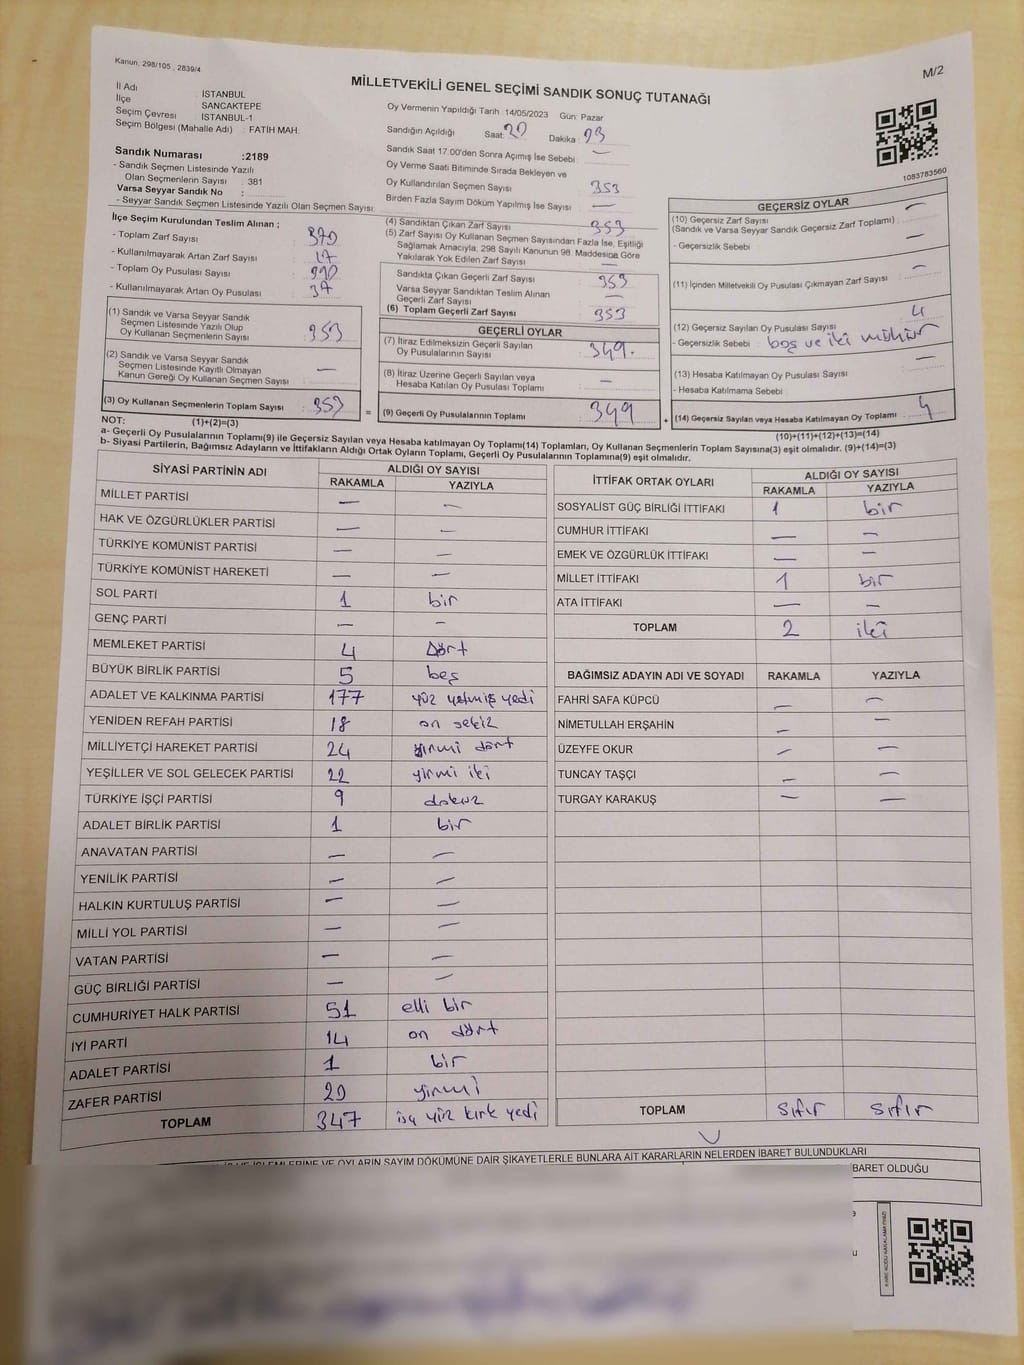 Kanun, 298/105 , 2839/4
M/2
MİLLETVEKİLİ GENEL SEÇİMİ SANDIK SONUÇ TUTANAĞI
İl Adı : İSTANBUL
İlçe SANCAKTEPE
Seçim Çevresi İSTANBUL-1
Seçim Bölgesi (Mahalle Adı) : FATİH MAH.
Sandık Numarası :2189
- Sandık Seçmen Listesinde Yazılı
Olan Seçmenlerin Sayısı : 381
Varsa Seyyar Sandık No :
- Seyyar Sandık Seçmen Listesinde Yazılı Olan Seçmen Sayısı:
Oy Vermenin Yapıldığı Tarih :14/05/2023 Gün: Pazar
Sandığın Açıldığı Saat: Dakika :
Sandık Saat 17:00'den Sonra Açımış İse Sebebi : —
Oy Verme Saati Bitiminde Sırada Bekleyen ve
Oy Kullandırılan Seçmen Sayısı : 353
Birden Fazla Sayım Döküm Yapılmış İse Sayısı : —
1083783560
İlçe Seçim Kurulundan Teslim Alınan ;
- Toplam Zarf Sayısı :
- Kullanılmayarak Artan Zarf Sayısı : 17
- Toplam Oy Pusulası Sayısı :
- Kullanılmayarak Artan Oy Pusulası : 37
(1) Sandık ve Varsa Seyyar Sandık
Seçmen Listesinde Yazılı Olup
Oy Kullanan Seçmenlerin Sayısı : 353
(2) Sandık ve Varsa Seyyar Sandık
Seçmen Listesinde Kayıtlı Olmayan
Kanun Gereği Oy Kullanan Seçmen Sayısı : —
(3) Oy Kullanan Seçmenlerin Toplam Sayısı : 353
(1)+(2)=(3)
(4) Sandıktan Çıkan Zarf Sayısı : 353
(5) Zarf Sayısı Oy Kullanan Seçmen Sayısından Fazla İse, Eşitliği
Sağlamak Amacıyla, 298 Sayılı Kanunun 98. Maddesine Göre
Yakılarak Yok Edilen Zarf Sayısı : —
Sandıkta Çıkan Geçerli Zarf Sayısı : 353
Varsa Seyyar Sandıktan Teslim Alınan
Geçerli Zarf Sayısı : —
(6) Toplam Geçerli Zarf Sayısı : 353
GEÇERLİ OYLAR
(7) İtiraz Edilmeksizin Geçerli Sayılan
Oy Pusulalarının Sayısı : 349
(8) İtiraz Üzerine Geçerli Sayılan veya
Hesaba Katılan Oy Pusulası Toplamı : —
= (9) Geçerli Oy Pusulalarının Toplamı : 349
GEÇERSİZ OYLAR
(10) Geçersiz Zarf Sayısı
(Sandık ve Varsa Seyyar Sandık Geçersiz Zarf Toplamı) : —
- Geçersizlik Sebebi : —
(11) İçinden Milletvekili Oy Pusulası Çıkmayan Zarf Sayısı : —
(12) Geçersiz Sayılan Oy Pusulası Sayısı : 4
- Geçersizlik Sebebi : boş ve iki mühür
(13) Hesaba Katılmayan Oy Pusulası Sayısı : —
- Hesaba Katılmama Sebebi
+ (14) Geçersiz Sayılan veya Hesaba Katılmayan Oy Toplamı : 4
(10)+(11)+(12)+(13)=(14)
NOT:
a- Geçerli Oy Pusulalarının Toplamı(9) ile Geçersiz Sayılan veya Hesaba katılmayan Oy Toplamı(14) Toplamları, Oy Kullanan Seçmenlerin Toplam Sayısına(3) eşit olmalıdır. (9)+(14)=(3)
b- Siyasi Partilerin, Bağımsız Adayların ve İttifakların Aldığı Ortak Oyların Toplamı, Geçerli Oy Pusulalarının Toplamına(9) eşit olmalıdır.
SİYASİ PARTİNİN ADI ALDIĞI OY SAYISI
RAKAMLA YAZIYLA
MİLLET PARTİSİ — —
HAK VE ÖZGÜRLÜKLER PARTİSİ — —
TÜRKİYE KOMÜNİST PARTİSİ — —
TÜRKİYE KOMÜNİST HAREKETİ — —
SOL PARTİ 1 bir
GENÇ PARTİ — —
MEMLEKET PARTİSİ 4 Dört
BÜYÜK BİRLİK PARTİSİ 5 beş
ADALET VE KALKINMA PARTİSİ 177 yüz yetmiş yedi
YENİDEN REFAH PARTİSİ 18 on sekiz
MİLLİYETÇİ HAREKET PARTİSİ 24 yirmi dört
YEŞİLLER VE SOL GELECEK PARTİSİ 22 yirmi iki
TÜRKİYE İŞÇİ PARTİSİ 9 dokuz
ADALET BİRLİK PARTİSİ 1 bir
ANAVATAN PARTİSİ — —
YENİLİK PARTİSİ — —
HALKIN KURTULUŞ PARTİSİ — —
MİLLİ YOL PARTİSİ — —
VATAN PARTİSİ — —
GÜÇ BİRLİĞİ PARTİSİ — —
CUMHURİYET HALK PARTİSİ 51 elli bir
İYİ PARTİ 14 on dört
ADALET PARTİSİ 1 bir
ZAFER PARTİSİ 20 yirmi
TOPLAM 347 üç yüz kırk yedi
İTTİFAK ORTAK OYLARI ALDIĞI OY SAYISI
RAKAMLA YAZIYLA
SOSYALİST GÜÇ BİRLİĞİ İTTİFAKI 1 bir
CUMHUR İTTİFAKI — —
EMEK VE ÖZGÜRLÜK İTTİFAKI — —
MİLLET İTTİFAKI 1 bir
ATA İTTİFAKI — —
TOPLAM 2 iki
BAĞIMSIZ ADAYIN ADI VE SOYADI RAKAMLA YAZIYLA
FAHRİ SAFA KÜPCÜ — —
NİMETULLAH ERŞAHİN — —
ÜZEYFE OKUR — —
TUNCAY TAŞÇI — —
TURGAY KARAKUŞ — —
TOPLAM sıfır sıfır
VE İŞLEMLERİNE VE OYLARIN SAYIM DÖKÜMÜNE DAİR ŞİKAYETLERLE BUNLARA AİT KARARLARIN NELERDEN İBARET BULUNDUKLARI
BARET OLDUĞU